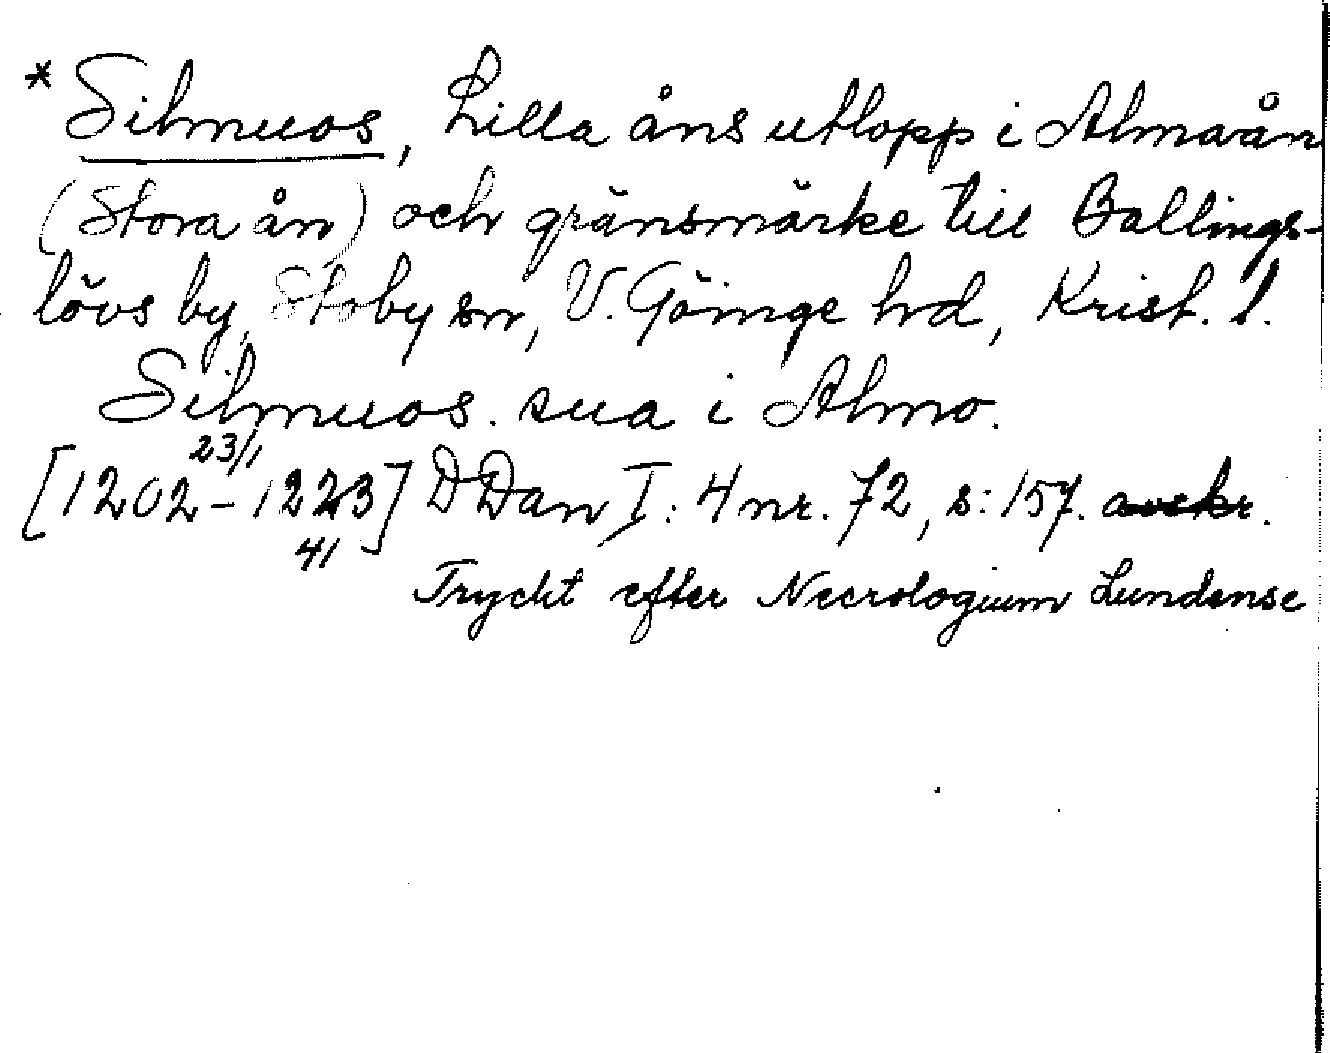 * Silmuos, Lilla åns utlopp i Almaån
(Stora ån) och gränsmärke till Ballings-
lövs by, Stoby sn, V. Göinge hd, Krist. l.
Silmuos. sua i Almo.
23/1
[1202-1223] DDan I: 4 nr. 72, s: 157. avskr.
41
Tryckt efter Necrologium Lundense